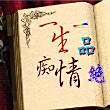 一生一品
痴情
绝